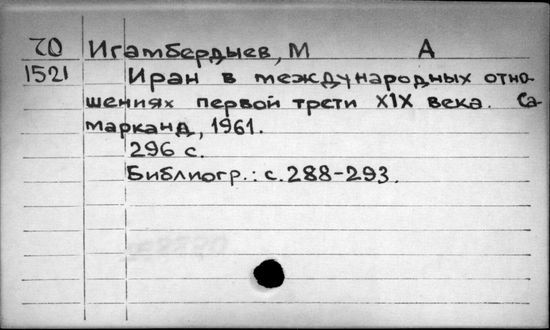 20 Игамбердыев, М А
1521 Иран в международных отно-
шениях первой трети XIX века. Са-
марканд, 1961.
296 с.
Библиогр.: с. 288-293.